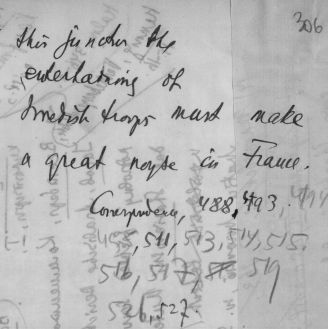 306
this junctur the
entertaining of
Swedish troops must make
a great noyse in France.
Correspondence, 488, 493, 494
511, 513, 514, 515.
516, 517, 519
526, 527.